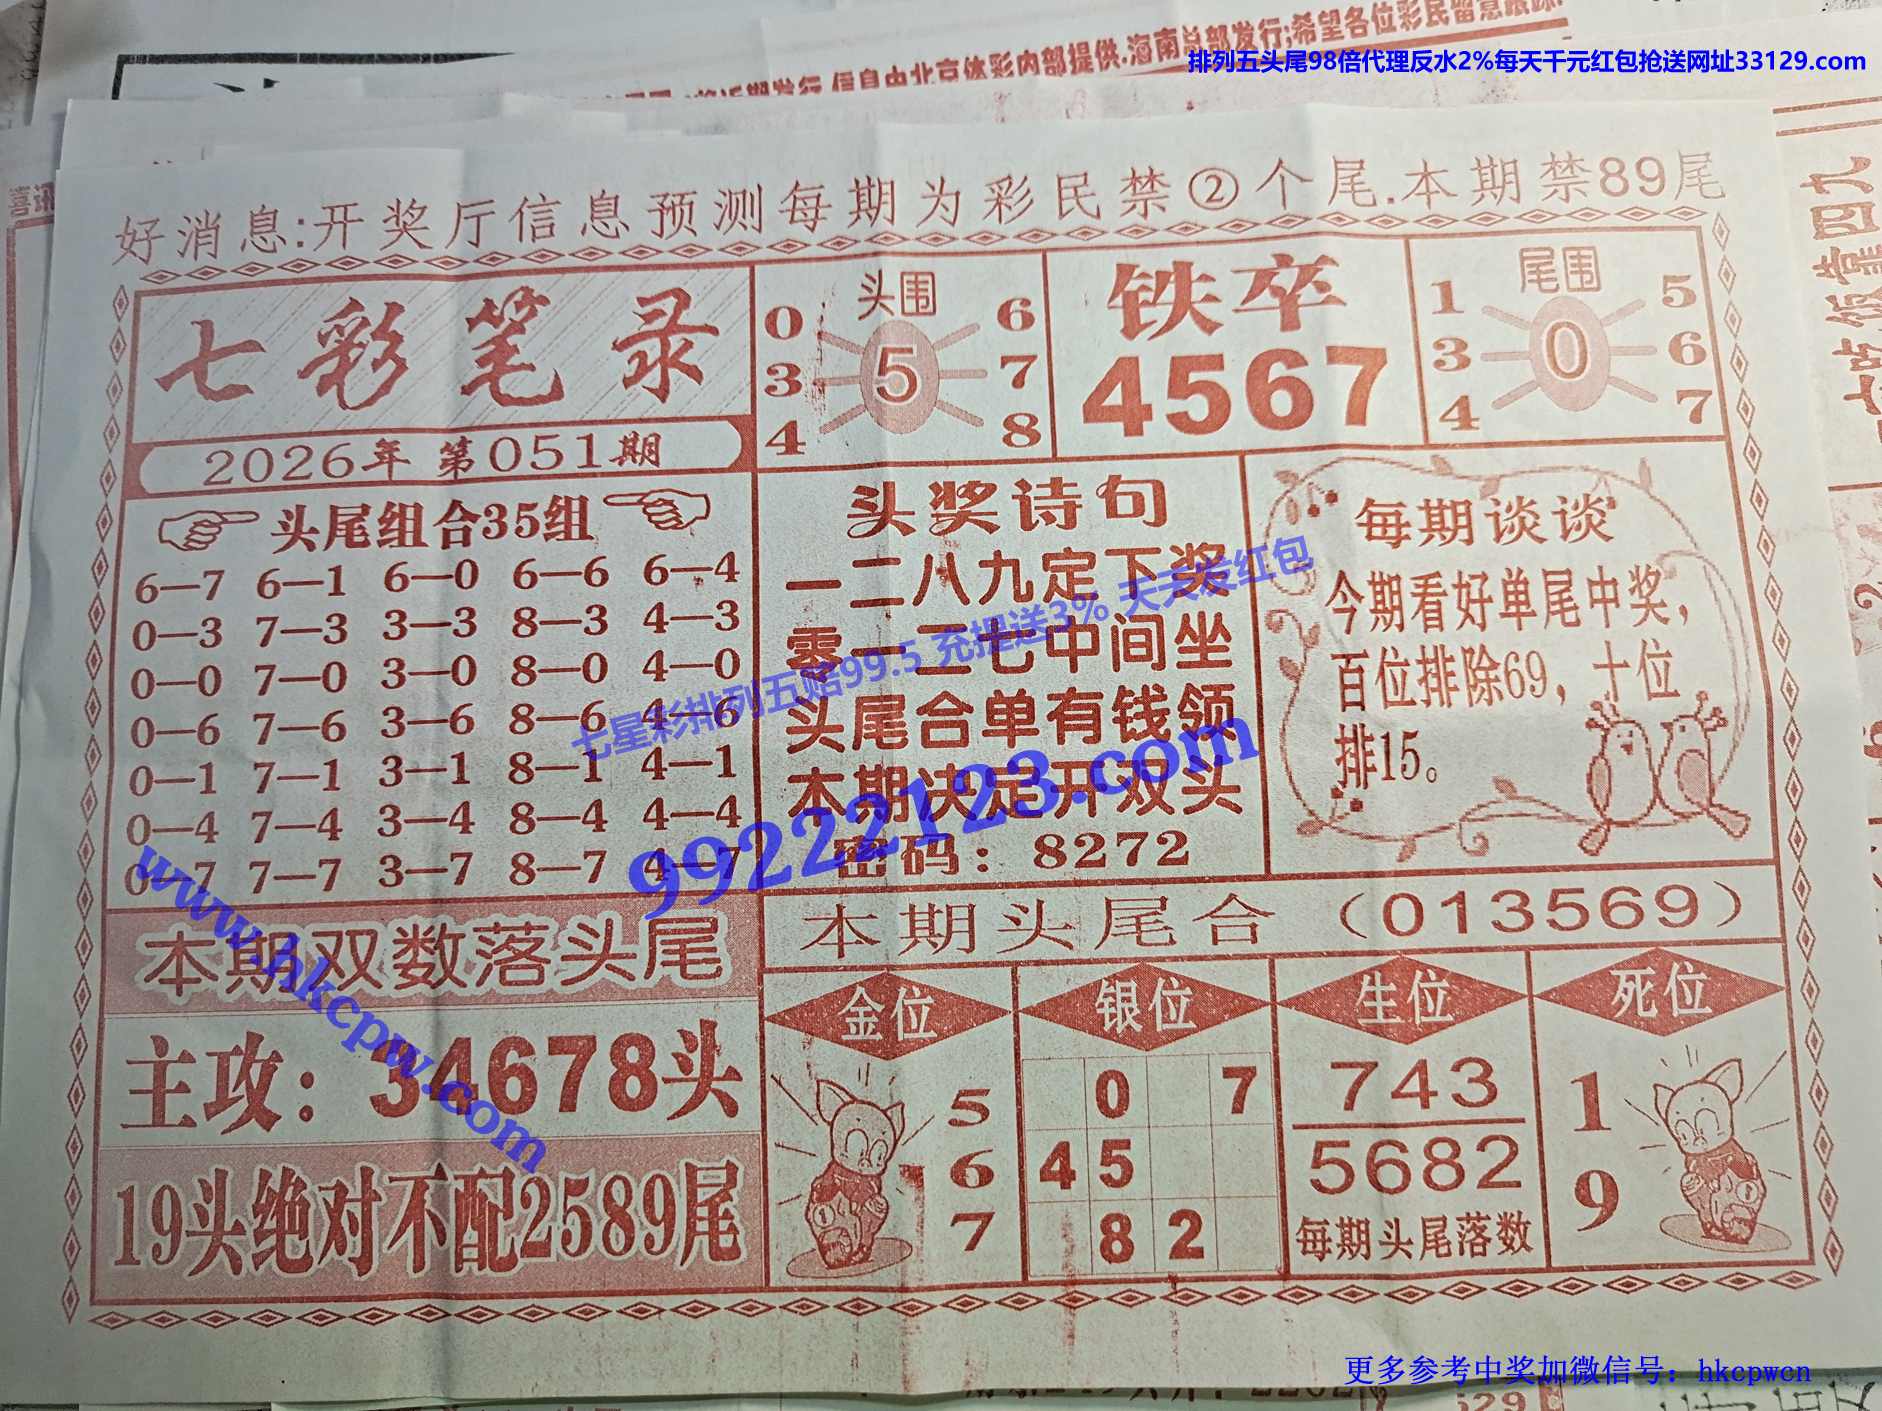 信息由北京体彩内部提供.海南总部发行;希望各位彩民留意跟踪.
排列五头尾98倍代理反水2%每天千元红包抢送网址33129.com
好消息:开奖厅信息预测每期为彩民禁②个尾.本期禁89尾
七彩笔录
2026年 第051期
头围
0 6
3 5 7
4 8
铁卒
4567
尾围
1 5
3 0 6
4 7
头尾组合35组
6—7 6—1 6—0 6—6 6—4
0—3 7—3 3—3 8—3 4—3
0—0 7—0 3—0 8—0 4—0
0—6 7—6 3—6 8—6 4—6
0—1 7—1 3—1 8—1 4—1
0—4 7—4 3—4 8—4 4—4
0—7 7—7 3—7 8—7 4—7
头奖诗句
一二八九定下奖
零一二七中间坐
头尾合单有钱领
本期决定开双头
密码: 8272
每期谈谈
今期看好单尾中奖,
百位排除69, 十位
排15。
七星彩排列五赔99.5 充提送3% 天天发红包
99222123.com
www.hkcpw.com
本期双数落头尾
主攻: 34678头
19头绝对不配2589尾
本期头尾合 (013569)
金位
5
6
7
银位
0 7
45
82
生位
743
5682
每期头尾落数
死位
1
9
更多参考中奖加微信号: hkcpwcn